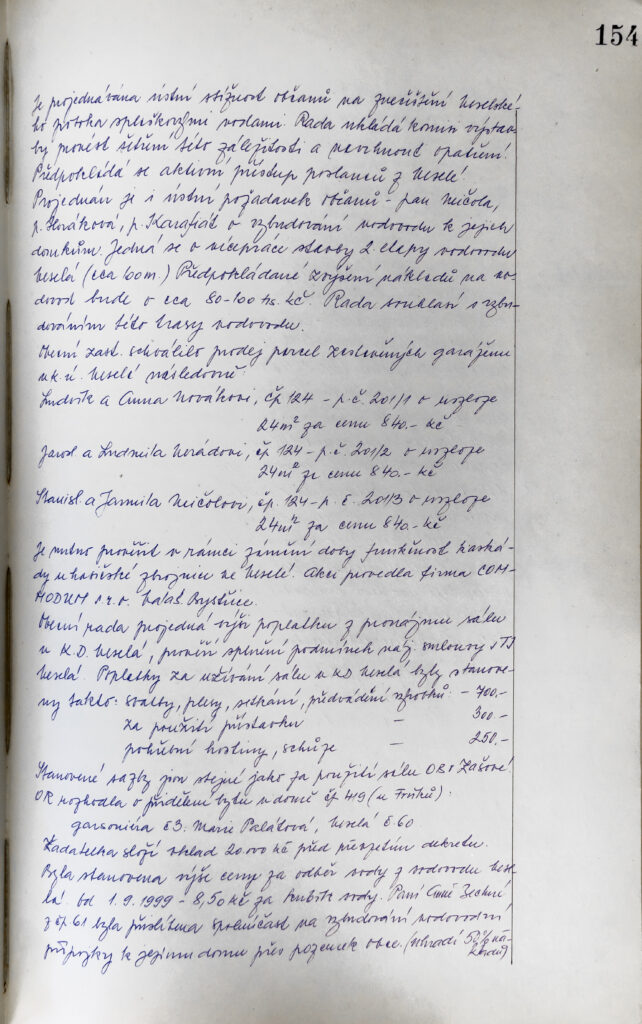 154
Je projednávána ústní stížnost občanů na znečištění Veselské-
ho potoka splaškovými vodami. Rada ukládá komisi výstav-
by provést šetření této záležitosti a navrhnout opatření.
Předpokládá se aktivní přístup poslanců z Veselé.
Projednán je i ústní požadavek občanů - pan Mičola,
p. Horáková, p. Karafiát o vybudování vodovodu k jejich
domkům. Jedná se o vícepráce stavby 2. etapy vodovodu
Veselá (cca 100m.) Předpokládané zvýšení nákladů na vo-
dovod bude o cca 80-100 tis. kč. Rada souhlasí s vybu-
dováním této trasy vodovodu.
Obecní zast. schválilo prodej parcel zastavěných garážemi
v k.ú. Veselé následovně:
Ludvík a Anna Novákovi, čp. 124 - p.č. 201/1 o rozloze
24m² za cenu 840.- kč
Jarosl. a Ludmila Horádovi, čp. 124 - p.č. 201/2 o rozloze
24m² za cenu 840.- kč
Stanisl. a Jarmila Mičolovi, čp. 124 - p.č. 201/3 o rozloze
24m² za cenu 840.- kč
Je nutno prověřit v rámci záruční doby funkčnost kaská-
dy u hasičské zbrojnice ve Veselé. Akci provedla firma COM-
MODUM s.r.o. Valaš. Bystřice.
Obecní rada projedná výši poplatku z pronájmu sálu
v K.D. Veselá, prověří splnění podmínek náj. smlouvy s TJ
Veselá. Poplatky za užívání sálu v KD Veselá byly stanove-
ny takto: svatby, plesy, setkání, předvádění výrobků: - 700.-
za použití přístavku - 300.-
pohřební hostiny, schůze - 250.-
Stanovené sazby jsou stejné jako za použití sálu OB v Zašové.
OR rozhodla o přidělení bytu v domě čp 419 (u Frňků).
garsoniéra č 3. Marie Palátová, Veselá č 60
Žadatelka složí vklad 20.000 kč před převzetím dekretu.
Byla stanovena výše ceny za odběr vody z vodovodu Vese-
lá od 1.9.1999 - 8,50 kč za kubík vody. Paní Anně Zechné
z čp. 61 byla přislíbena spoluúčast na vybudování vodovodní
přípojky k jejímu domu přes pozemek obce. (uhradí 50% ná-
kladů)